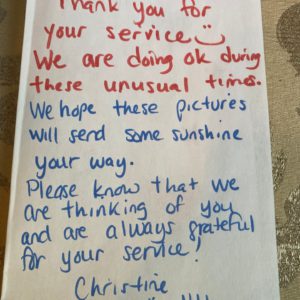 Thank you for
your service
We are doing ok during
these unusual times.
We hope these pictures
will send some sunshine
your way.
Please know that we
are thinking of you
and are always grateful
for your service!
Christine